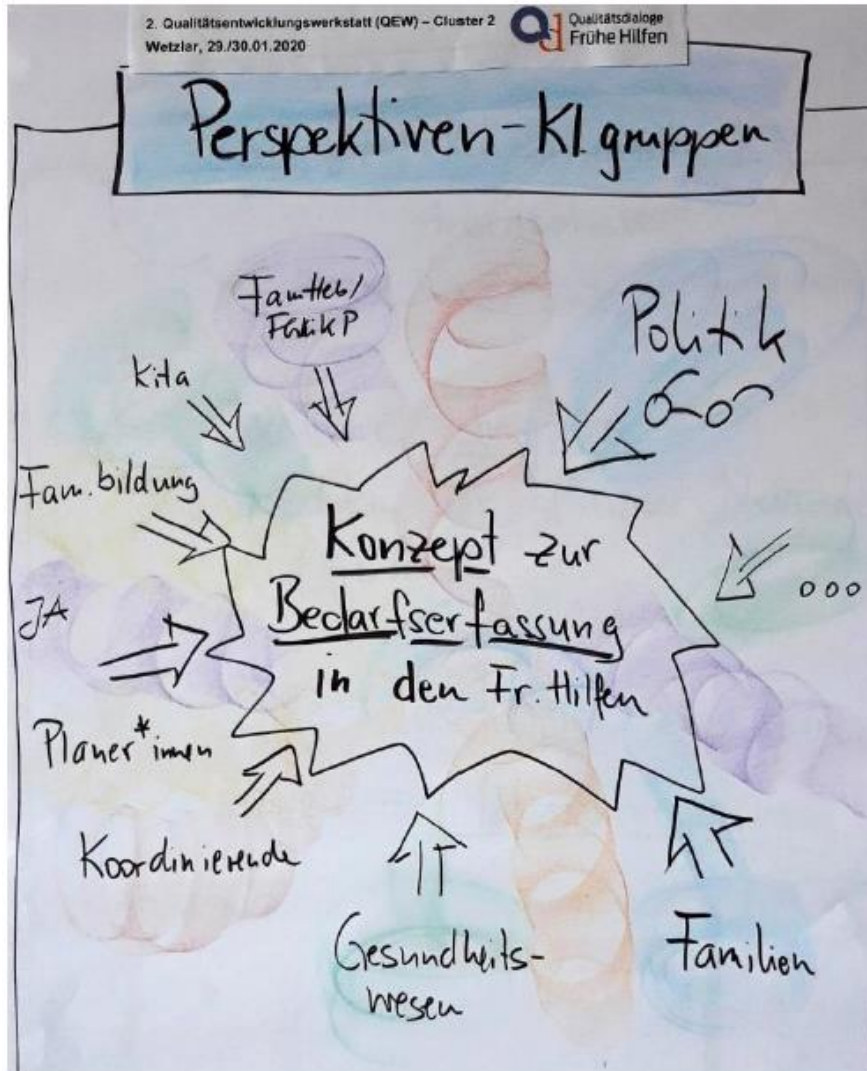 2. Qualitätsentwicklungswerkstatt (QEW) – Cluster 2
Wetzlar, 29./30.01.2020
Qualitätsdialoge
Frühe Hilfen
Perspektiven-Kl.gruppen
FamHeb/
FGKikP
Politik
Kita
Fam.bildung
Konzept zur
Bedarfserfassung
in den Fr. Hilfen
JA
Planer*innen
Koordinierende
Gesundheits-
wesen
Familien